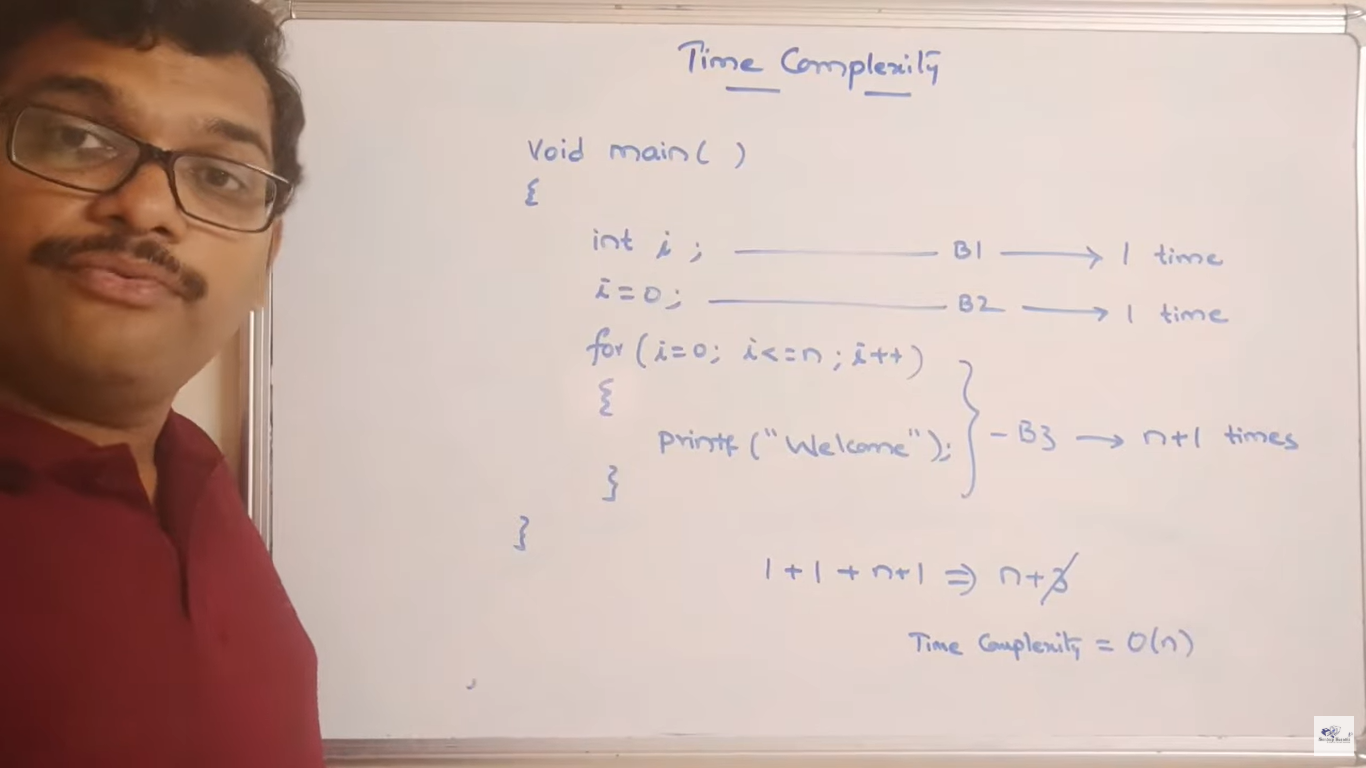 Time Complexity
Void main( )
{
int i ; B1 → 1 time
i=0; B2 → 1 time
for (i=0; i<=n; i++)
{
printf ("Welcome"); } - B3 → n+1 times
}
}
1 + 1 + n+1 ⇒ n+3
Time Complexity = O(n)